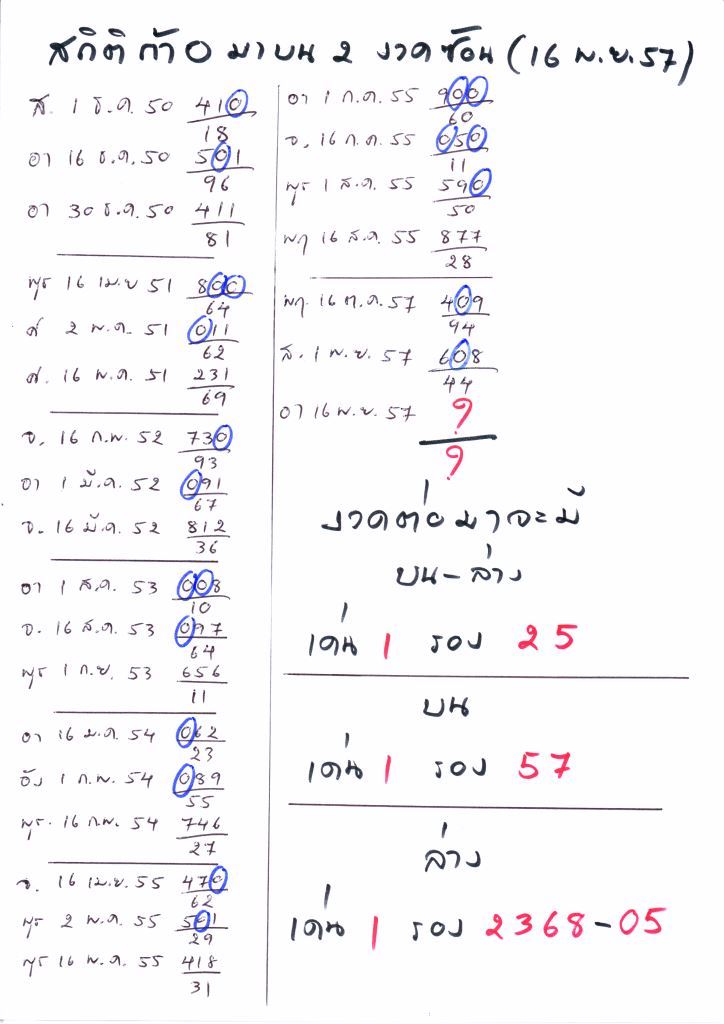 สถิติ ถ้า 0 มาบน 2 งวดซ้อน (16 พ.ย. 57)
ส. 1 ธ.ค. 50 410
18
อา 16 ธ.ค. 50 501
96
อา 30 ธ.ค. 50 411
81
พุธ 16 เม.ย 51 800
64
ศ 2 พ.ค. 51 011
62
ศ. 16 พ.ค. 51 231
69
จ. 16 ก.พ. 52 730
93
อา 1 มี.ค. 52 091
67
จ. 16 มี.ค. 52 812
36
อา 1 ส.ค. 53 008
10
จ. 16 ส.ค. 53 097
64
พุธ 1 ก.ย. 53 656
11
อา 16 ม.ค. 54 062
23
อัง 1 ก.พ. 54 089
55
พุธ. 16 ก.พ. 54 746
27
จ. 16 เม.ย. 55 470
62
พุธ 2 พ.ค. 55 501
29
พุธ 16 พ.ค. 55 418
31
อา 1 ก.ค. 55 900
60
จ. 16 ก.ค. 55 050
11
พุธ 1 ส.ค. 55 590
50
พฤ 16 ส.ค. 55 877
28
พฤ. 16 ต.ค. 57 409
94
ส. 1 พ.ย. 57 608
44
อา 16 พ.ย. 57 ?
?
งวดต่อมาจะมี
บน-ล่าง
เด่น 1 รอง 25
บน
เด่น 1 รอง 57
ล่าง
เด่น 1 รอง 2368-05